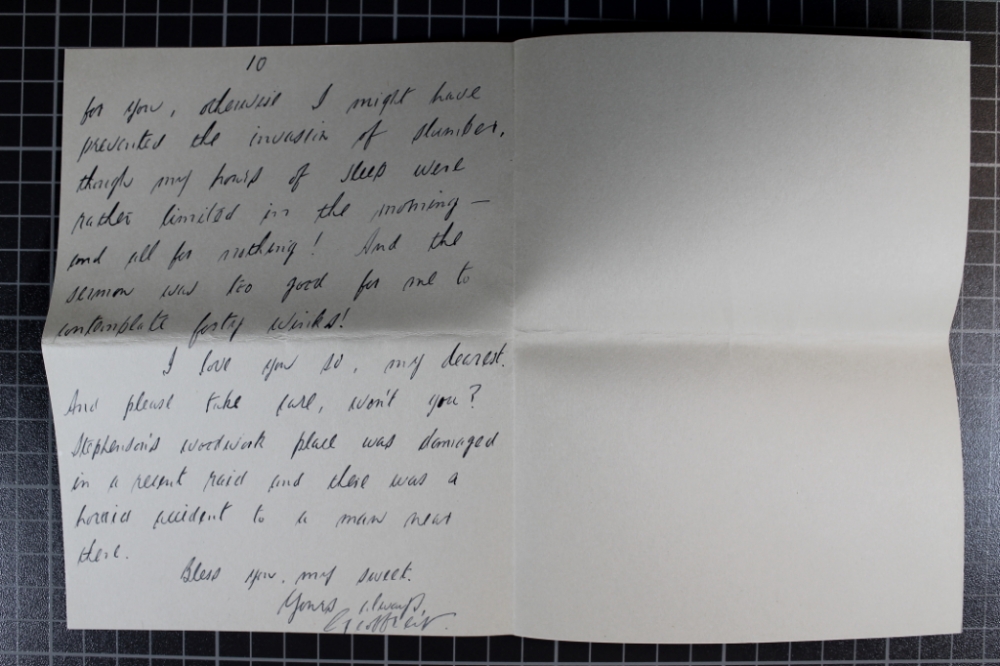 10
for you, otherwise I might have
prevented the invasion of slumber,
though my hours of sleep were
rather limited in the morning —
and all for nothing! And the
sermon was too good for me to
contemplate forty winks!
I love you so, my dearest.
And please take care, won't you?
Stephenson's woodwork place was damaged
in a recent raid and there was a
horrid accident to a man near
there.
Bless you, my sweet.
Yours always,